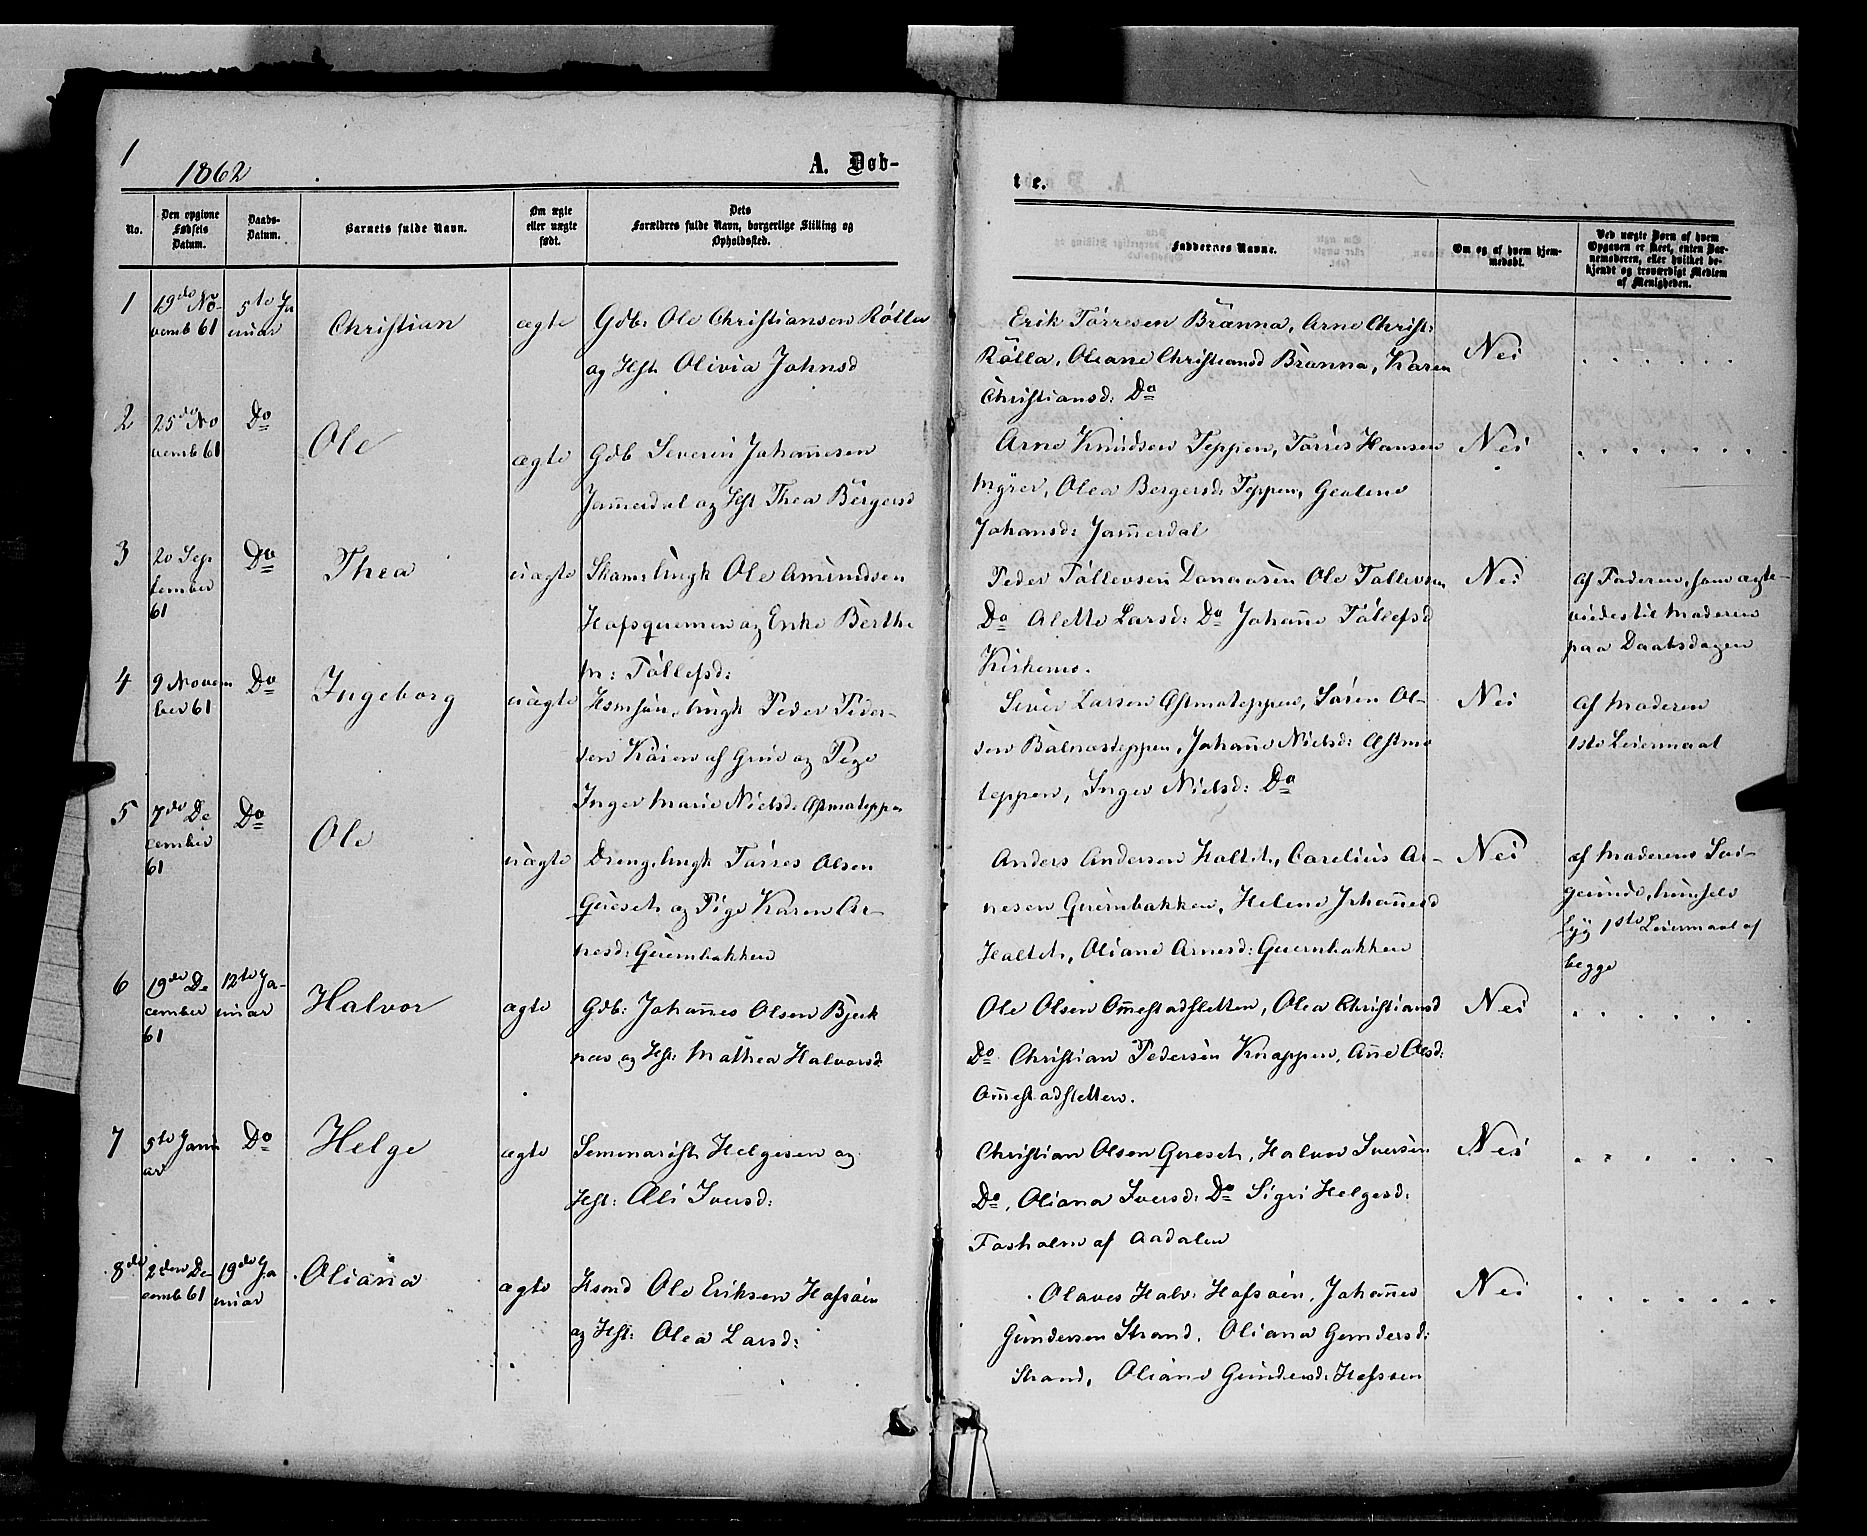 1
1862
A. Døb-
te.
No.
Den opgivne Fødsels Datum.
Daabs-Datum.
Barnets fulde Navn.
Om ægte eller uægte født.
Dets Forældres fulde Navn, borgerlige Stilling og Opholdssted.
Faddernes Navne.
Om og af hvem hjemmedøbt.
Ved uægte Børn af hvem Opgaven er skeet, enten Barnemoderen, eller hvilket bekjendt og troværdigt Medlem af Menigheden.
1
19de No-
vemb 61
5te Ja
nuar
Christian
ægte
Gdb. Ole Christiansen Rølla
og Hst. Olivia Johnsd
Erik Torresen Brænna, Arne Christ:
Rølla, Oliane Christiansd Brænna, Karen
Christiansd: Do
Nei
2
25de No
vemb 61
Do
Ole
ægte
Gdb Severin Johannesen
Jammerdal og Hst Thea Bergersd
Arne Knudsen Teppen, Torris Hansen
Myrer, Olea Bergersd: Teppen,
Johansd: Jammerdal
Nei
3
20 Sep
tember
61
Do
Thea
uægte
Ole Amundsen
og Enke Berthe
M: Tollefsd:
Peder Tollevsen Ole Tollevsen
Do Alette Larsd: Do Johanne Tollefsd
Nei
Af Faderen, som ægte-
viedes til Moderen
paa Daabsdagen
4
9 Novem
ber 61
Do
Ingeborg
uægte
Peder Peder-
sen af Grue og Pige
Inger Marie Nielsd: Østmoteppen
Siver Larsen Østmoteppen, Søren Ol-
sen Balnæsteppen, Johanne Nielsd: Østmo
teppen, Inger Nielsd: Do
Nei
Af Moderen
1ste Leiermaal
5
7de De
cember
61
Do
Ole
uægte
Dreng, Ungk Torres Olsen
Quæset, og Pige Karen Ar-
nesd: Quernbakken
Anders Andersen Haltet, Carelius Ar-
nesen Quernbakken, Helene Johannesd
Haltet, Oliane Arnesd: Quernbakken
Nei
af Moderens
1ste Leiermaal af
begge
6
19de De
cember
61
12te Ja-
nuar
Halvor
ægte
Gdb: Johannes Olsen Bjerk
næs og Hst: Mathea Halvorsd:
Ole Olsen Ommestadsletten, Olea Christiansd
Do Christian Pedersen Knappen, Anne Olsd:
Ommestadsletten.
Nei
7
5te Janu
ar
Do
Helge
ægte
Seminarist Helgesen og
Hst: Eli Iversd:
Christian Olsen Quæset, Halvor Iversen
Do, Oliana Iversd: Do Sigri Helgesd:
af Aadalen
Nei
8de
2den De
cemb 61
19de Ja
nuar
Oliana
ægte
Hsmd Ole Eriksen Hofsøen
og Hst: Olea Larsd:
Olaves Halv: Hofsøen, Johannes
Gundersen Strand, Oliana Gundersd:
Strand, Oliane Gundersd: Hofsøen
Nei